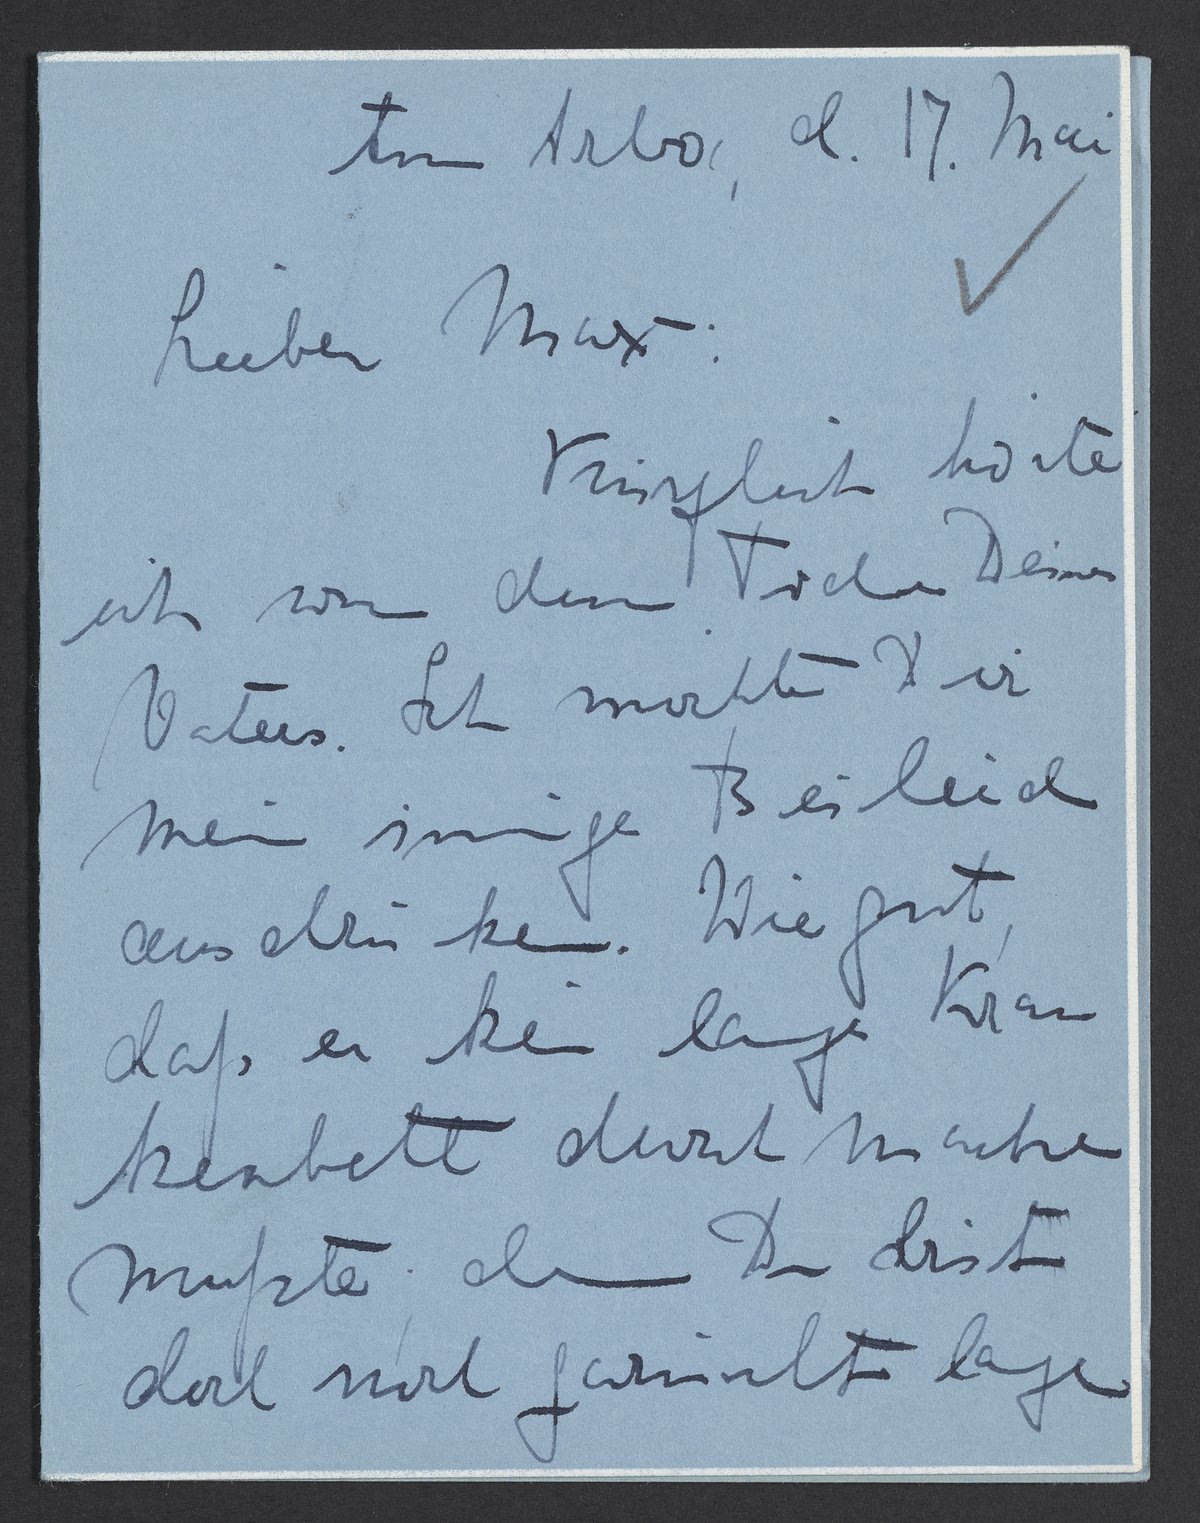 Ann Arbor, d. 17. Mai
Lieber Max:
Kürzlich hörte
ich von dem Tode Deines
Vaters. Ich möchte Dir
mein innige Beileid
ausdrücken. Wie gut,
daß er kein lange Kran
kenbett durchmachen
mußte; denn Du bist
doch noch gar nicht lange